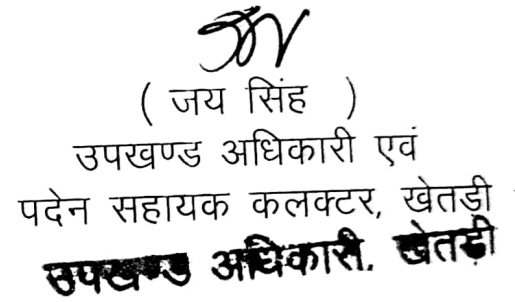 ( जय सिंह )
उपखण्ड अधिकारी एवं
पदेन सहायक कलक्टर, खेतडी
उपखण्ड अधिकारी. खेतड़ी